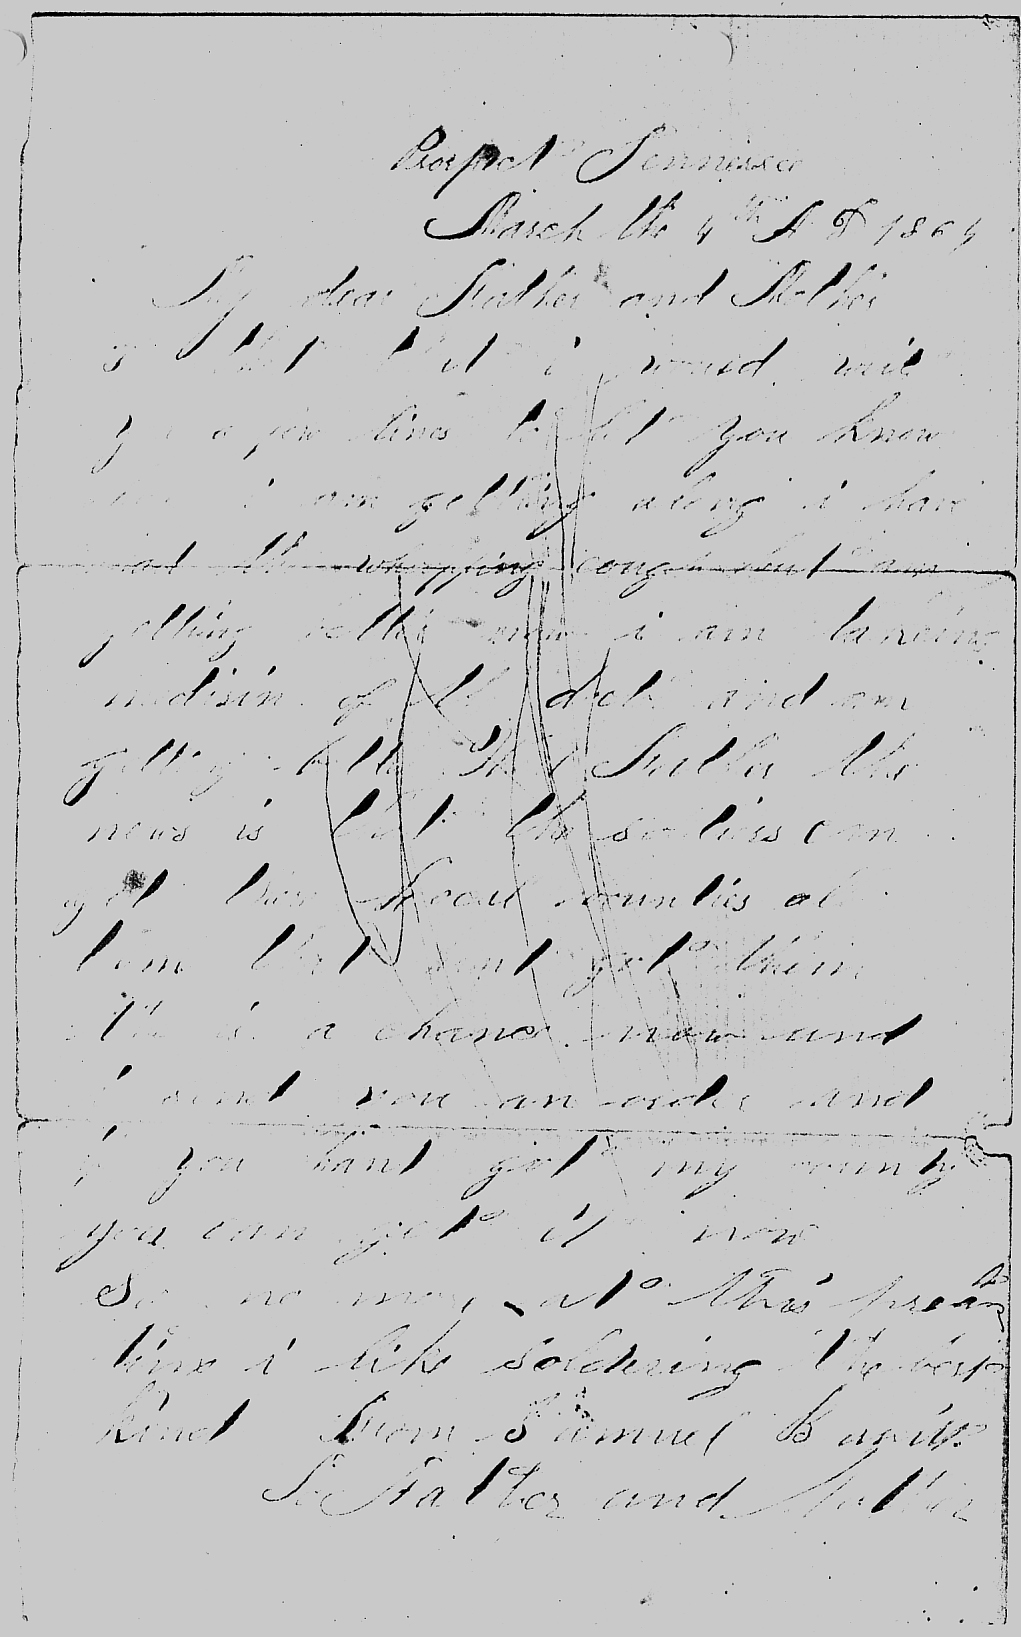 Prospect Tennessee
March the 4th A D 1864
My dear Father and Mother
that i would write
you a few lines to let you know
how i am getting along i have
had the whopping cough but am
getting better now i am taking
medisin of the doct and am
getting better Father the
news is that the soldiers can
get their bounties
that got them
is a chance now and
i send you an order and
if you hant got my bounty
you can get it now
So no more at this presant
time i like soldering the best
kind From Samuel B
To Father and Mother